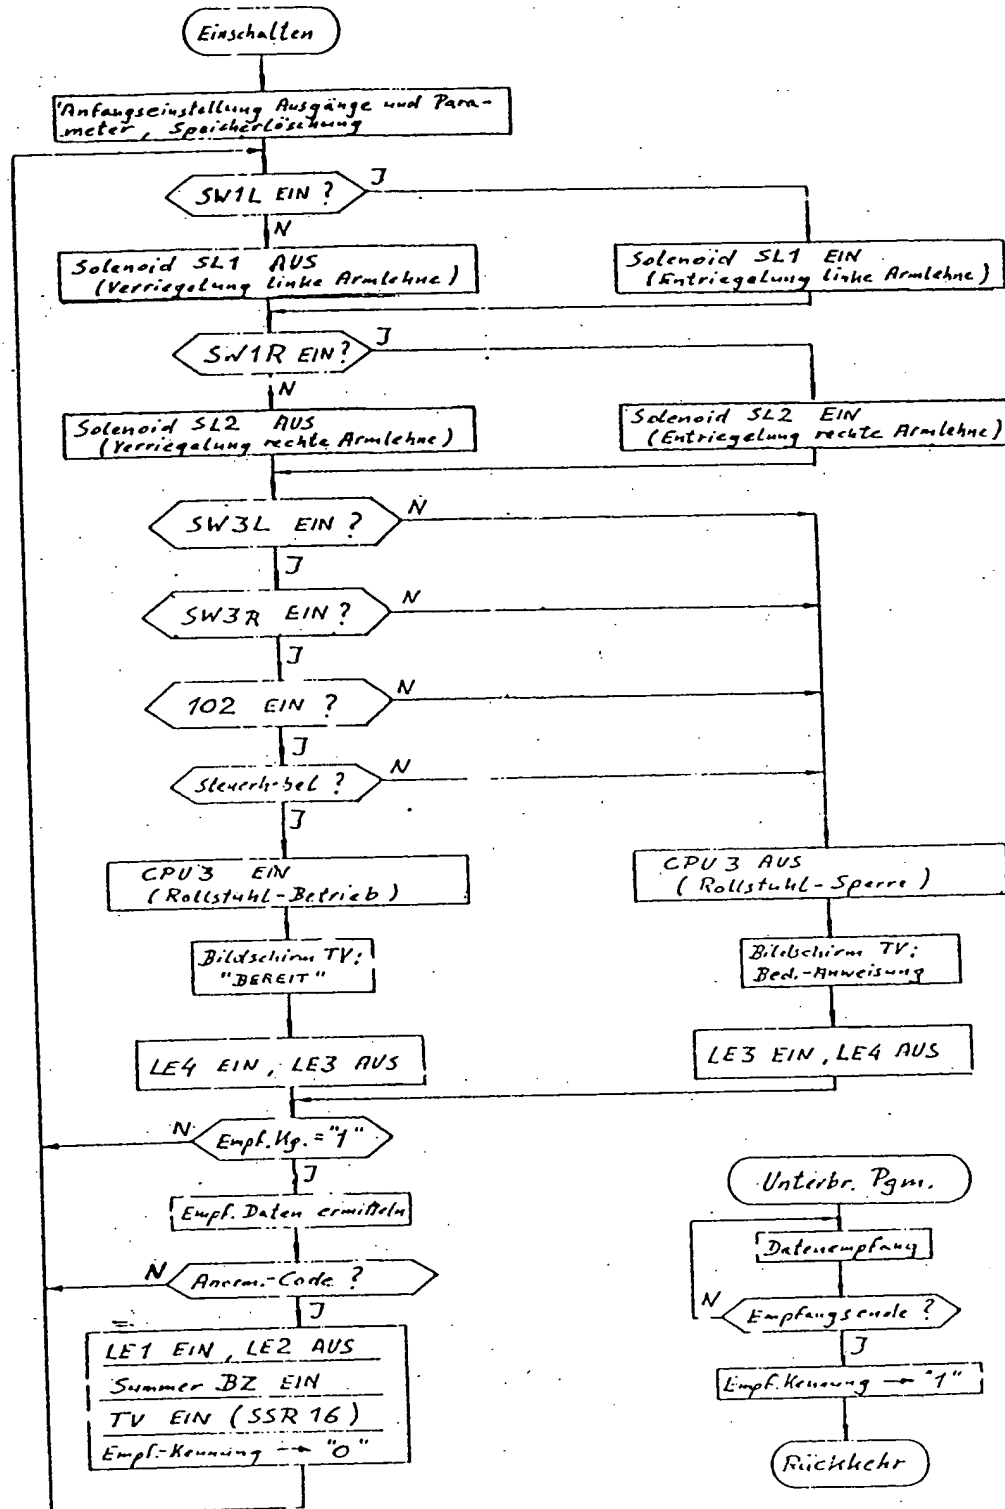 Einschalten
Anfangseinstellung Ausgänge und Para-
meter, Speicherlöschung
SW1L EIN ?
J
N
Solenoid SL1 AUS
(Verriegelung linke Armlehne)
Solenoid SL1 EIN
(Entriegelung linke Armlehne)
SW1R EIN ?
J
N
Solenoid SL2 AUS
(Verriegelung rechte Armlehne)
Solenoid SL2 EIN
(Entriegelung rechte Armlehne)
SW3L EIN ?
N
J
SW3R EIN ?
N
J
102 EIN ?
N
J
Steuerhebel ?
N
J
CPU3 EIN
(Rollstuhl-Betrieb)
CPU3 AUS
(Rollstuhl-Sperre)
Bildschirm TV:
"BEREIT"
Bildschirm TV:
Bed.-Anweisung
LE4 EIN, LE3 AUS
LE3 EIN, LE4 AUS
N
Empf. Kg. = "1"
J
Empf. Daten ermitteln
N
Anrem.-Code ?
J
LE1 EIN, LE2 AUS
Summer BZ EIN
TV EIN (SSR 16)
Empf.-Kennung → "0"
Unterbr. Pgm.
Datenempfang
N
Empfangsende ?
J
Empf. Kennung → "1"
Rückkehr